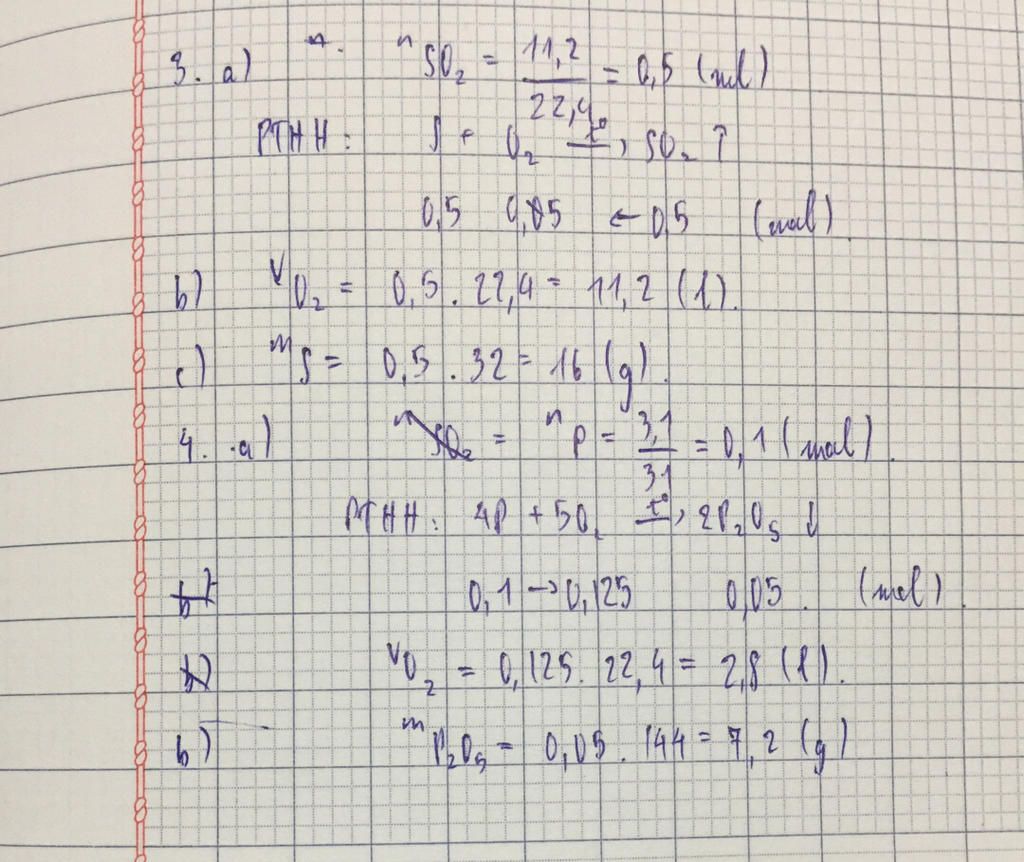 3. a) n SO₂ = 11,2/22,4 = 0,5 (mol)
PTHH: S + O₂ t°→ SO₂ ↑
0,5 0,05 ← 0,5 (mol).
b) V O₂ = 0,5 . 22,4 = 11,2 (l).
c) m S = 0,5 . 32 = 16 (g).
4. a) n SO₂ = n P = 3,1/31 = 0,1 (mol).
PTHH: 4P + 5O₂ t°→ 2P₂O₅ ↓
b) 0,1 → 0,125 0,05. (mol).
b) V O₂ = 0,125. 22,4 = 2,8 (l).
b) m P₂O₅ = 0,05. 144 = 7,2 (g)